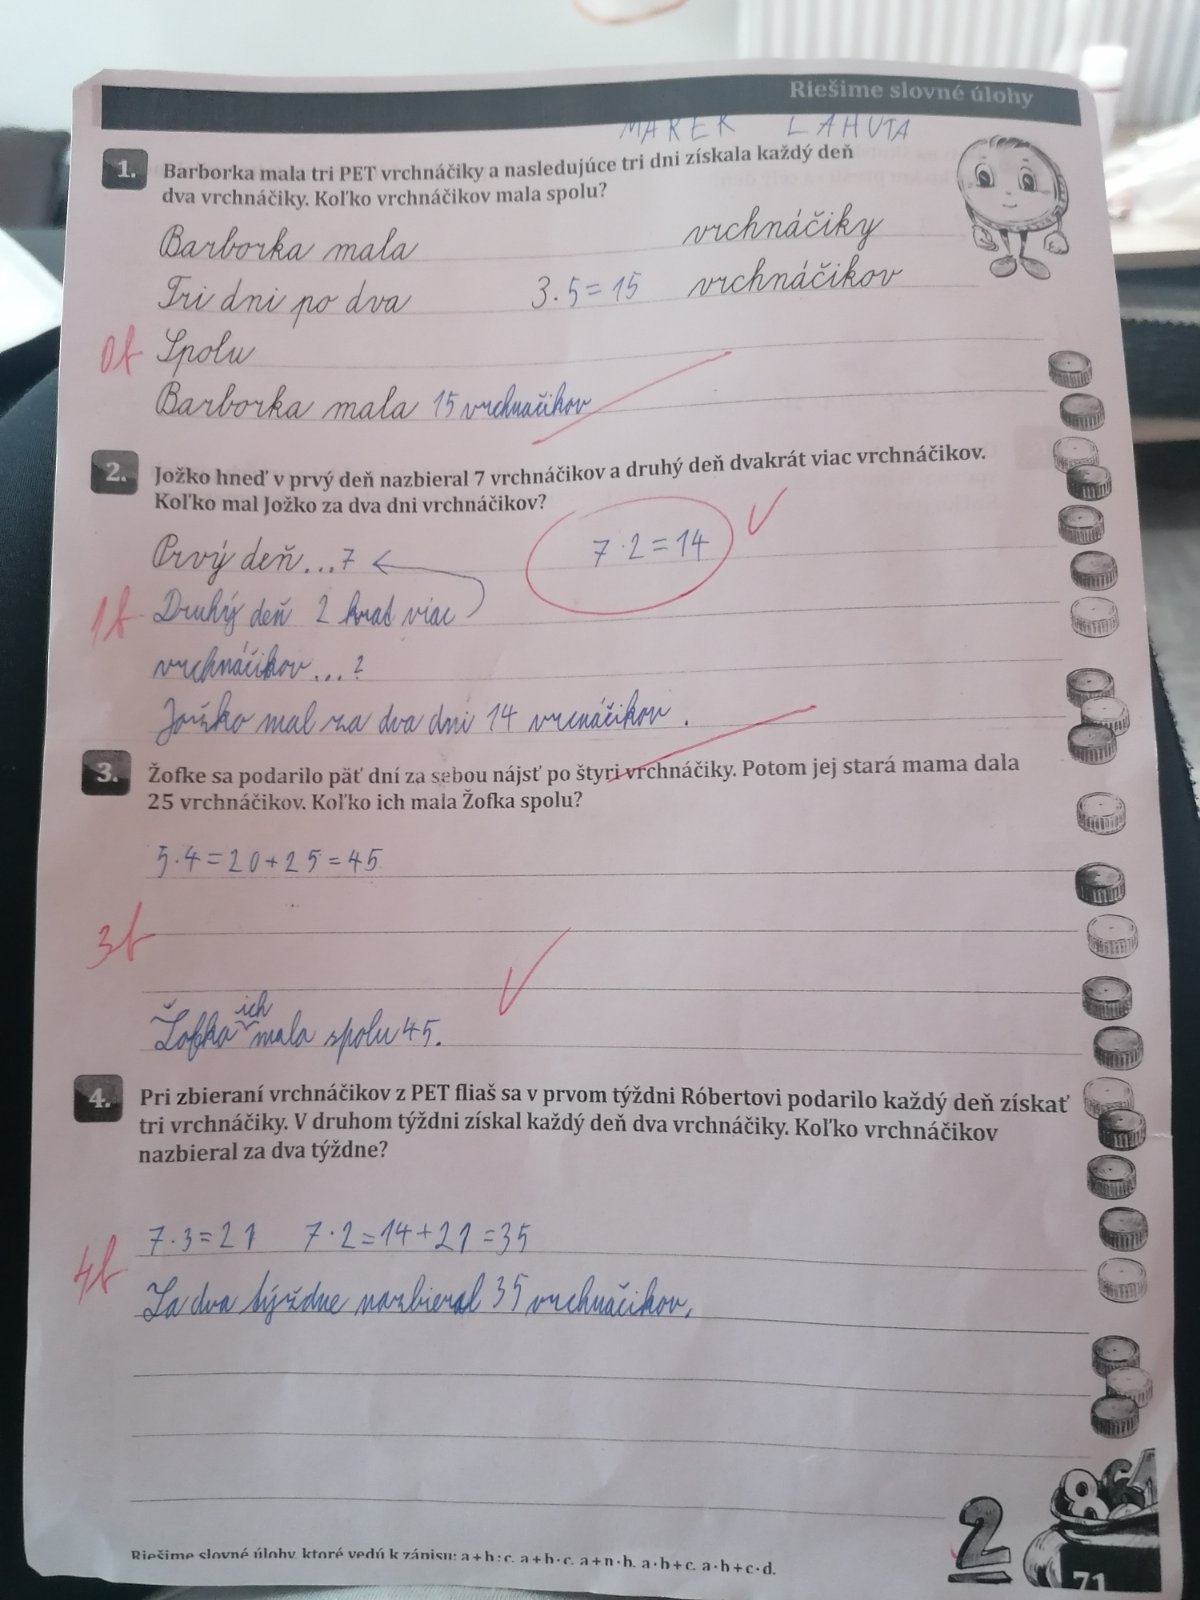 Riešime slovné úlohy
MAREK LAHUTA
1. Barborka mala tri PET vrchnáčiky a nasledujúce tri dni získala každý deň
dva vrchnáčiky. Koľko vrchnáčikov mala spolu?
Barborka mala vrchnáčiky
Tri dni po dva 3.5=15 vrchnáčikov
0b Spolu
Barborka mala 15 vrchnačikov
2. Jožko hneď v prvý deň nazbieral 7 vrchnáčikov a druhý deň dvakrát viac vrchnáčikov.
Koľko mal Jožko za dva dni vrchnáčikov?
Prvý deň...7 7·2=14
1b Druhý deň 2 krat viac
vrchnáčikov...?
Jožko mal za dva dni 14 vrcnáčikov.
3. Žofke sa podarilo päť dní za sebou nájsť po štyri vrchnáčiky. Potom jej stará mama dala
25 vrchnáčikov. Koľko ich mala Žofka spolu?
5·4=20+25=45
3b
ich
Žofka mala spolu 45.
4. Pri zbieraní vrchnáčikov z PET fliaš sa v prvom týždni Róbertovi podarilo každý deň získať
tri vrchnáčiky. V druhom týždni získal každý deň dva vrchnáčiky. Koľko vrchnáčikov
nazbieral za dva týždne?
7·3=21 7·2=14+21=35
4b Za dva týždne nazbieral 35 vrchnáčikov.
2 864
Riešime slovné úlohy, ktoré vedú k zápisu: a+b:c, a+b·c, a+n·b, a·b+c, a·b+c·d.
71